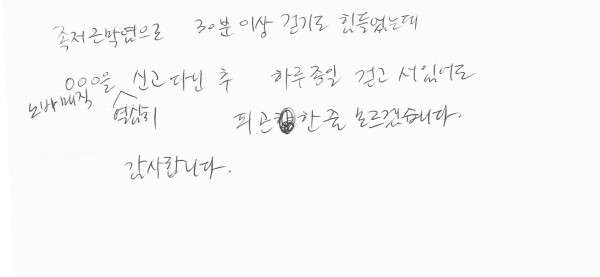 족저근막염으로 30분 이상 걷기도 힘들었는데
○○○을 신고 다닌 후 하루종일 걷고 서있어도
노바매직 열심히
피곤한 줄 모르겠습니다.
감사합니다.